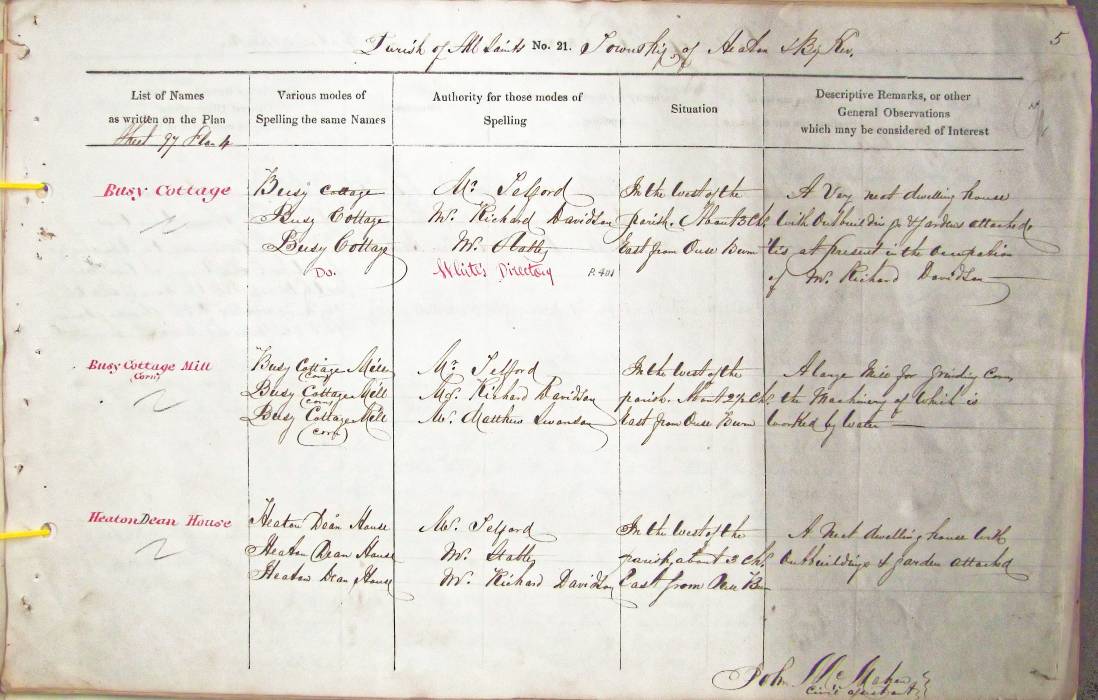 5
Parish of All Saints No. 21. Township of Heaton & By Ker.
List of Names
as written on the Plan
Various modes of
Spelling the same Names
Authority for those modes of
Spelling
Situation
Descriptive Remarks, or other
General Observations
which may be considered of Interest
Sheet 97 Plan 4
Busy Cottage
Busy Cottage
Mr. Telford
In the West of the
A Very neat dwelling house
Busy Cottage
Mr. Richard Davidson
parish. About 3 Chs.
with Outbuildings & Gardens attached
Busy Cottage
Mr. Stabler
East from Ouse Burn
tis at present in the Occupation
Do.
White's Directory
P. 401
of Mr. Richard Davidson
Busy Cottage Mill
(Corn)
Busy Cottage Mill
(Corn)
Mr. Telford
In the West of the
A large Mill for Grinding Corn
Busy Cottage Mill
(corn)
Mr. Richard Davidson
parish. About 2½ Chs.
the Machinery of Which is
Busy Cottage Mill
(corn)
Mr. Matthew Swanson
East from Ouse Burn
Worked by Water
Heaton Dean House
Heaton Dean House
Mr. Telford
In the West of the
A Neat dwelling house with
Heaton Dean House
Mr. Stabler
parish, about 3 Chs.
Outbuildings & garden attached
Heaton Dean House
Mr. Richard Davidson
East from Ouse Burn
John McMahon
Civil Assistant